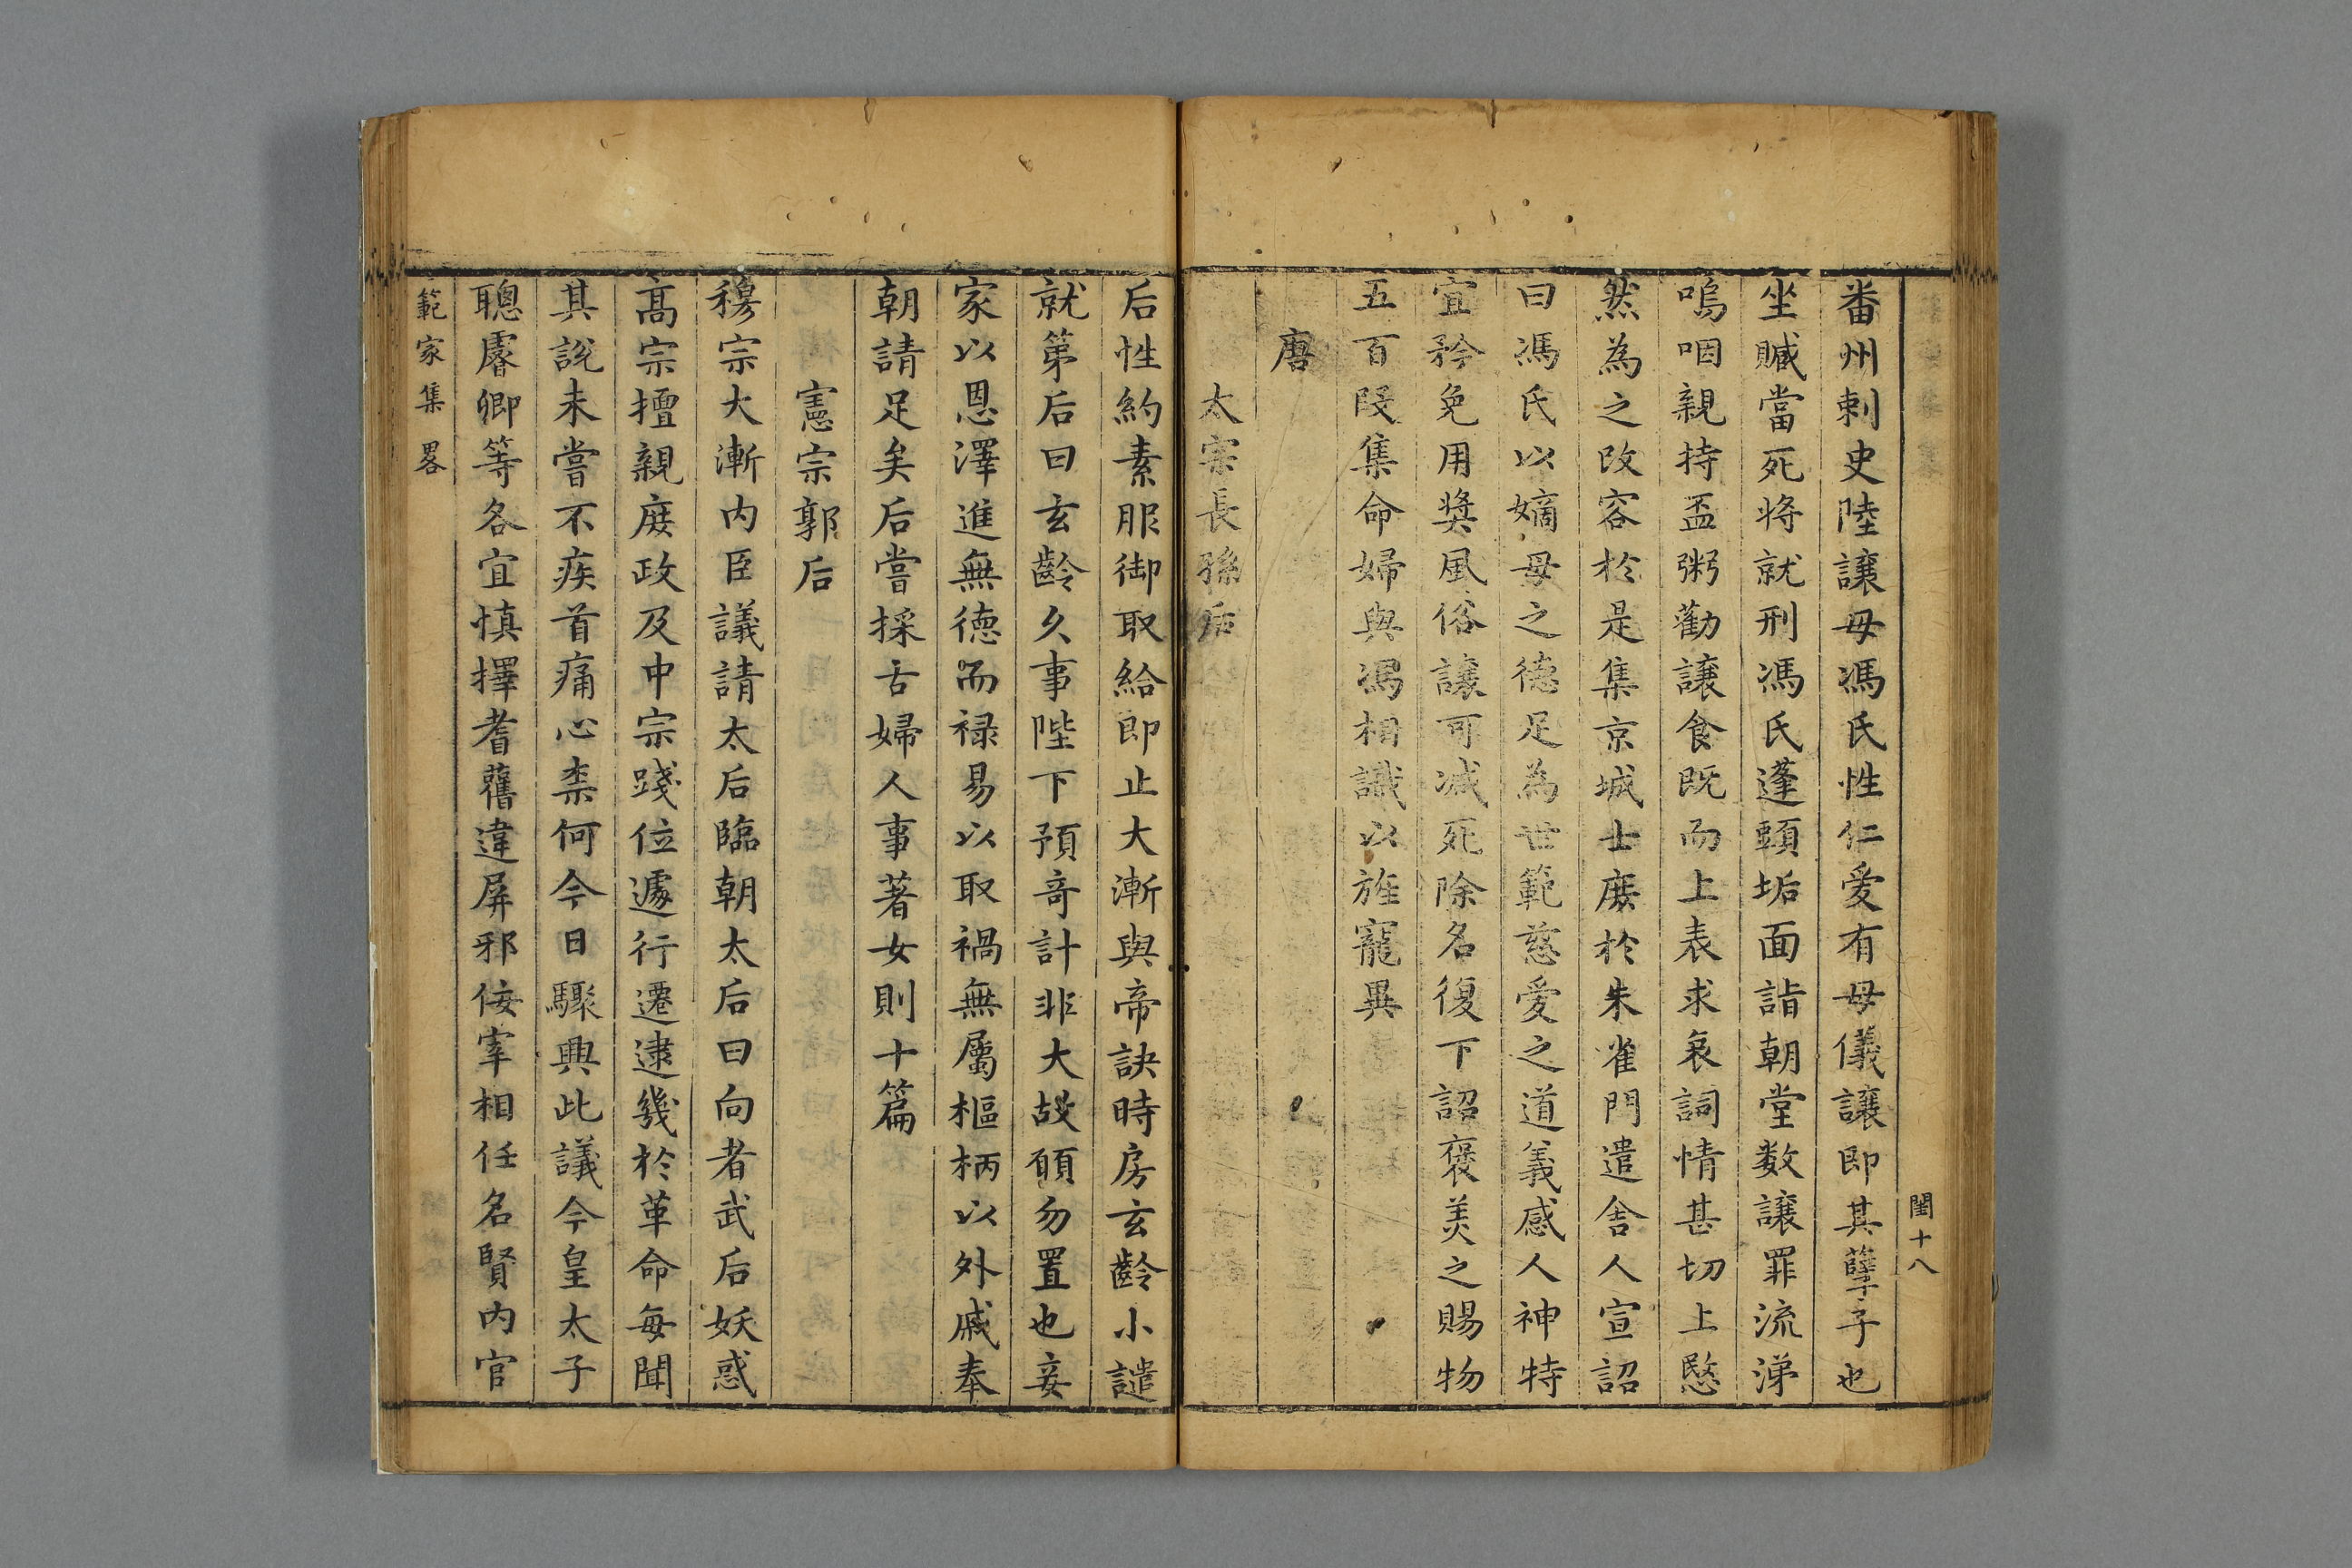 閨十八
番州刺史陸讓母馮氏性仁愛有母儀讓即其孽子也
坐贓當死将就刑馮氏蓬頭垢面詣朝堂数讓罪流涕
嗚咽親持盃粥勸讓食既而上表求哀詞情甚切上愍
然為之改容於是集京城士庶於朱雀門遣舎人宣詔
曰馮氏以嫡母之德足為世範慈愛之道義感人神特
宜矜免用奨風俗讓可减死除名復下詔褒美之賜物
五百段集命婦與馮相識以旌寵異
唐
太宗長孫后
后性約素服御取給即止大漸與帝訣時房玄齡小譴
就第后曰玄齡久事陛下預竒計非大故願勿置也妾
家以恩澤進無德而禄易以取禍無屬樞柄以外戚奉
朝請足矣后嘗採古婦人事著女則十篇
憲宗郭后
穆宗大漸内臣議請太后臨朝太后曰向者武后妖惑
髙宗擅親庶政及中宗踐位遽行遷逮幾於革命每聞
其説未嘗不疾首痛心柰何今日驟興此議今皇太子
聰睿卿等各宜慎擇耆舊違屏邪佞宰相任名賢内官
範家集畧